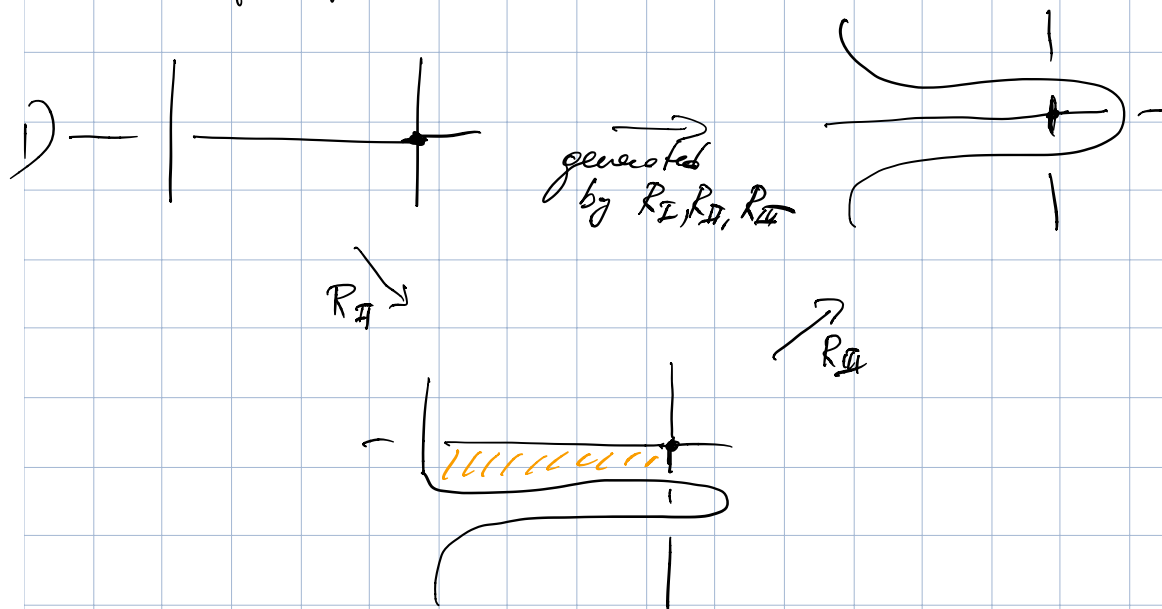 D
generated
by R_I, R_II, R_III
R_II
R_III